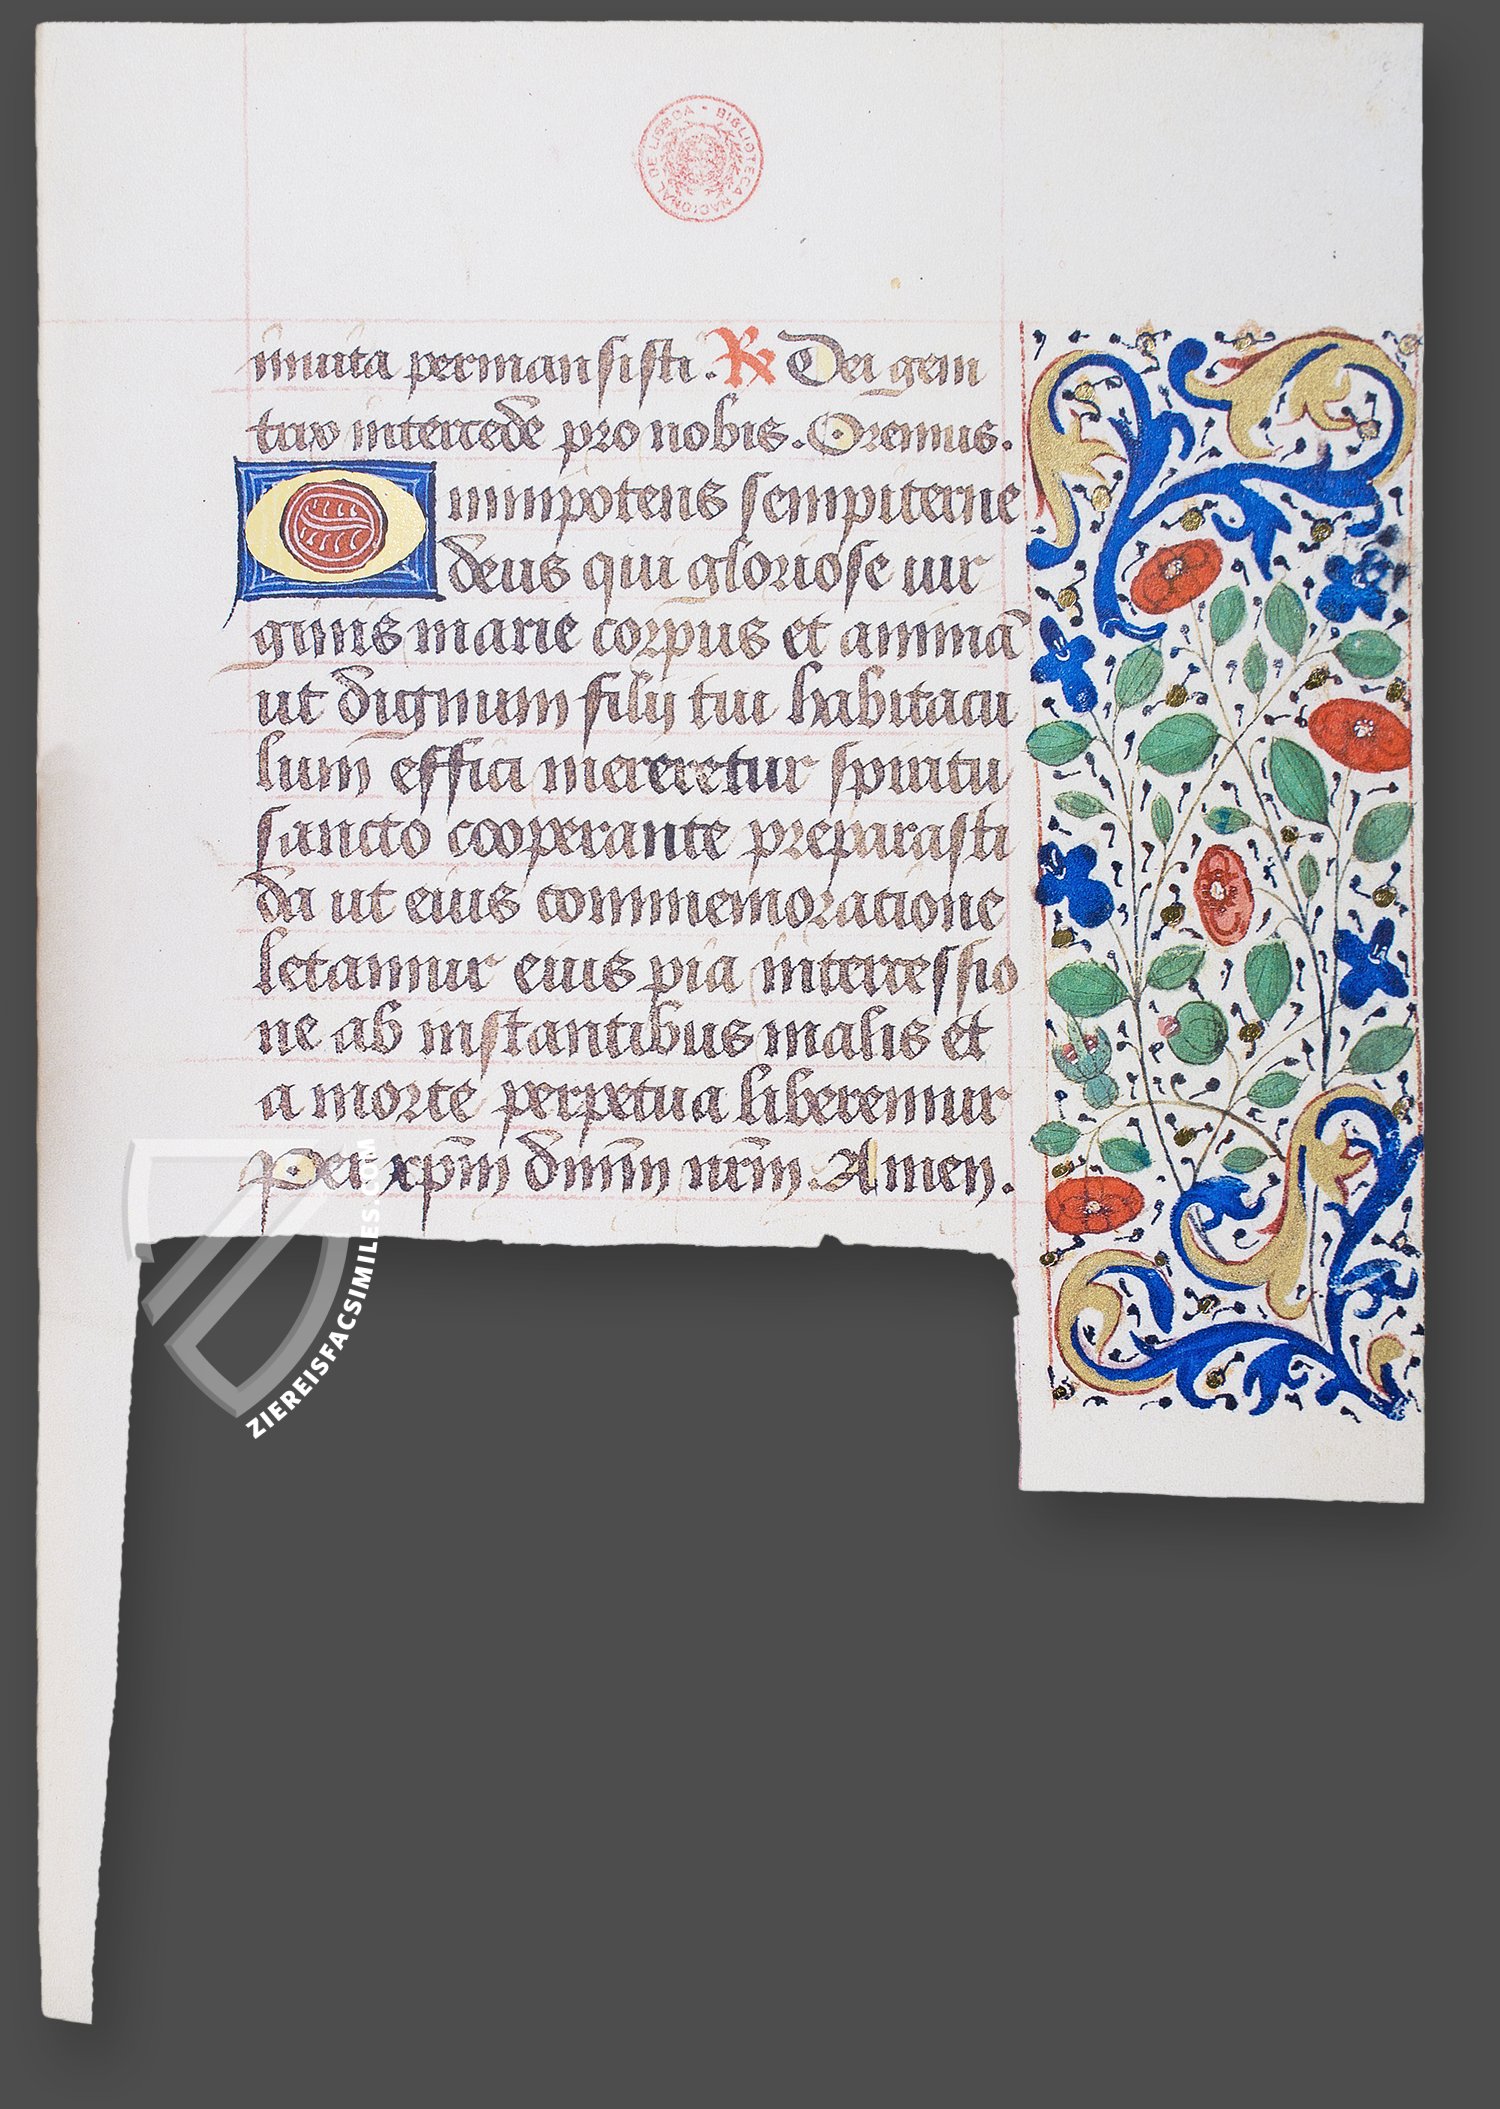 BIBLIOTECA NACIONAL DE LISBOA
inuita permansisti. R Dei geni
trix intercede pro nobis. Oremus.
Omnipotens sempiterne
deus qui gloriose uir
ginis marie corpus et animā
ut dignum filij tui habitacu
lum effici mereretur spiritu
sancto cooperante preparasti
da ut eius commemoratione
letamur eius pia intercessio
ne ab instantibus malis et
a morte perpetua liberemur
Per xp̄m dn̄m nr̄m. Amen.
ZIEREISFACSIMILES.COM